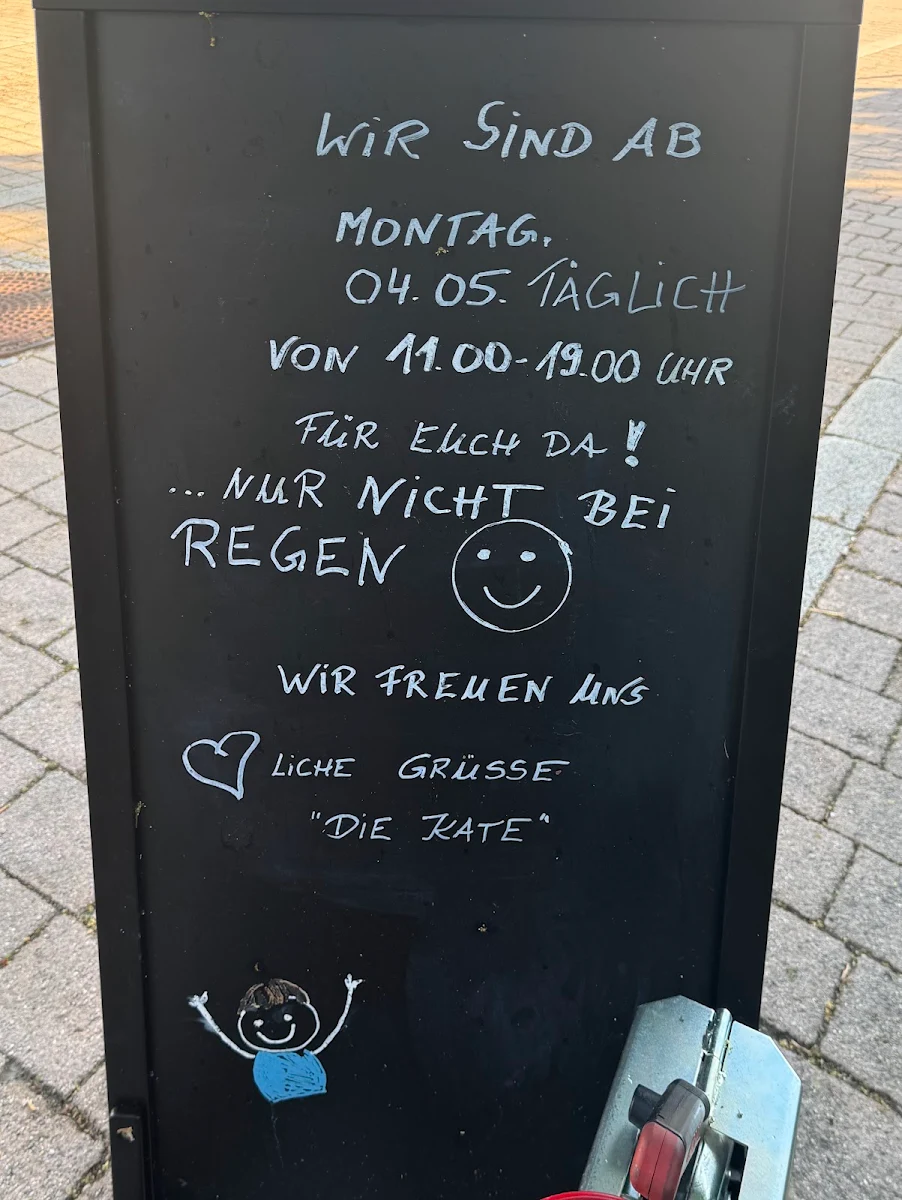 WiR SiND AB
MONTAG.
04.05. TÄGLiCH
VON 11.00-19.00 UHR
FÜR EUCH DA!
... NUR NiCHT BEi
REGEN
WiR FREUEN UNS
LiCHE GRÜSSE
"DiE KATE"